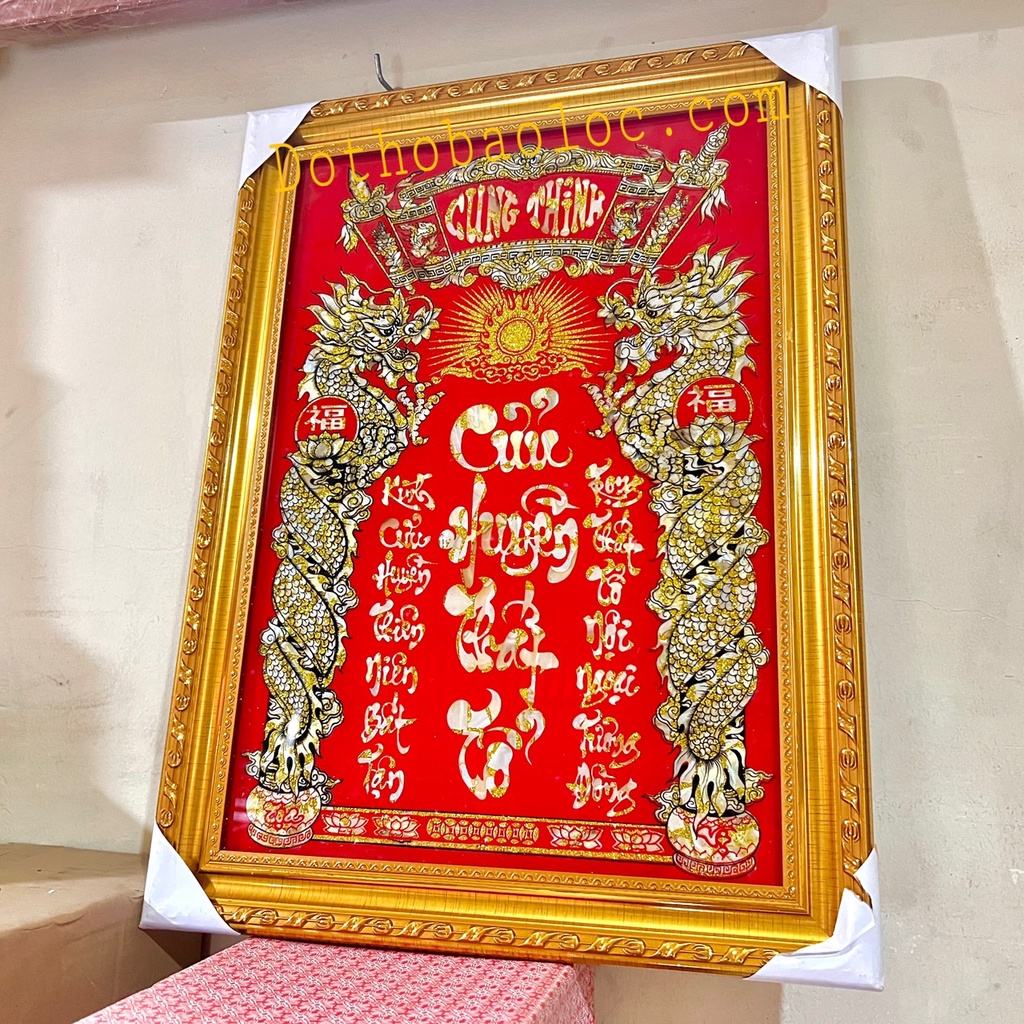 Dothobaoloc.com
CUNG THỈNH
福
福
Cửu
Huyền
Thất
Tổ
Kính
Cửu
Huyền
Thiên
Niên
Bất
Tận
Trọng
Thất
Tổ
Nội
Ngoại
Tương
Đồng